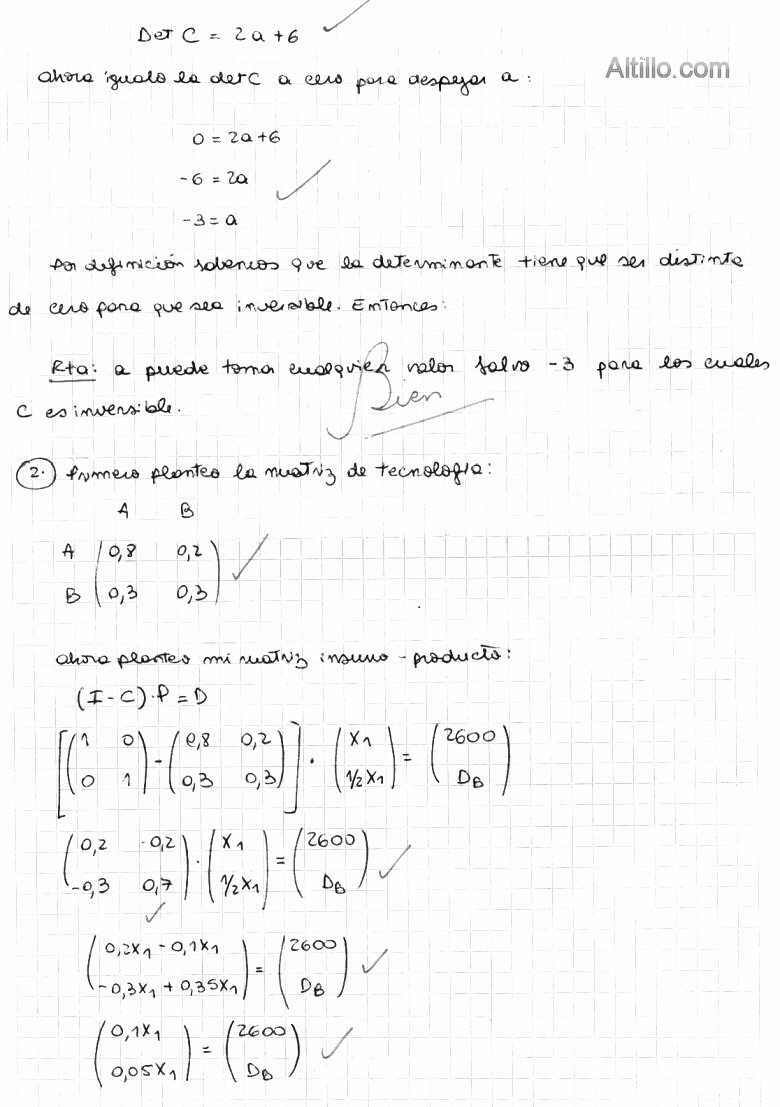 Det C = 2a + 6
Altillo.com
ahora igualo la det C a cero para despejar a:
0 = 2a + 6
-6 = 2a
-3 = a
Por definición sabemos que la determinante tiene que ser distinta
de cero para que sea inversible. Entonces:
Rta: a puede tomar cualquier valor salvo -3 para los cuales
C es inversible.
Bien
2. Primero planteo la matriz de tecnología:
A B
A (0,8 0,2)
B (0,3 0,3)
ahora planteo mi matriz insumo - producto:
(I - C) · P = D
[(1 0) - (0,8 0,2)] · (X1) = (2600)
[(0 1) - (0,3 0,3)] · (1/2X1) = (DB)
(0,2 -0,2) · (X1) = (2600)
(-0,3 0,7) · (1/2X1) = (DB)
(0,2X1 - 0,1X1) = (2600)
(-0,3X1 + 0,35X1) = (DB)
(0,1X1) = (2600)
(0,05X1) = (DB)